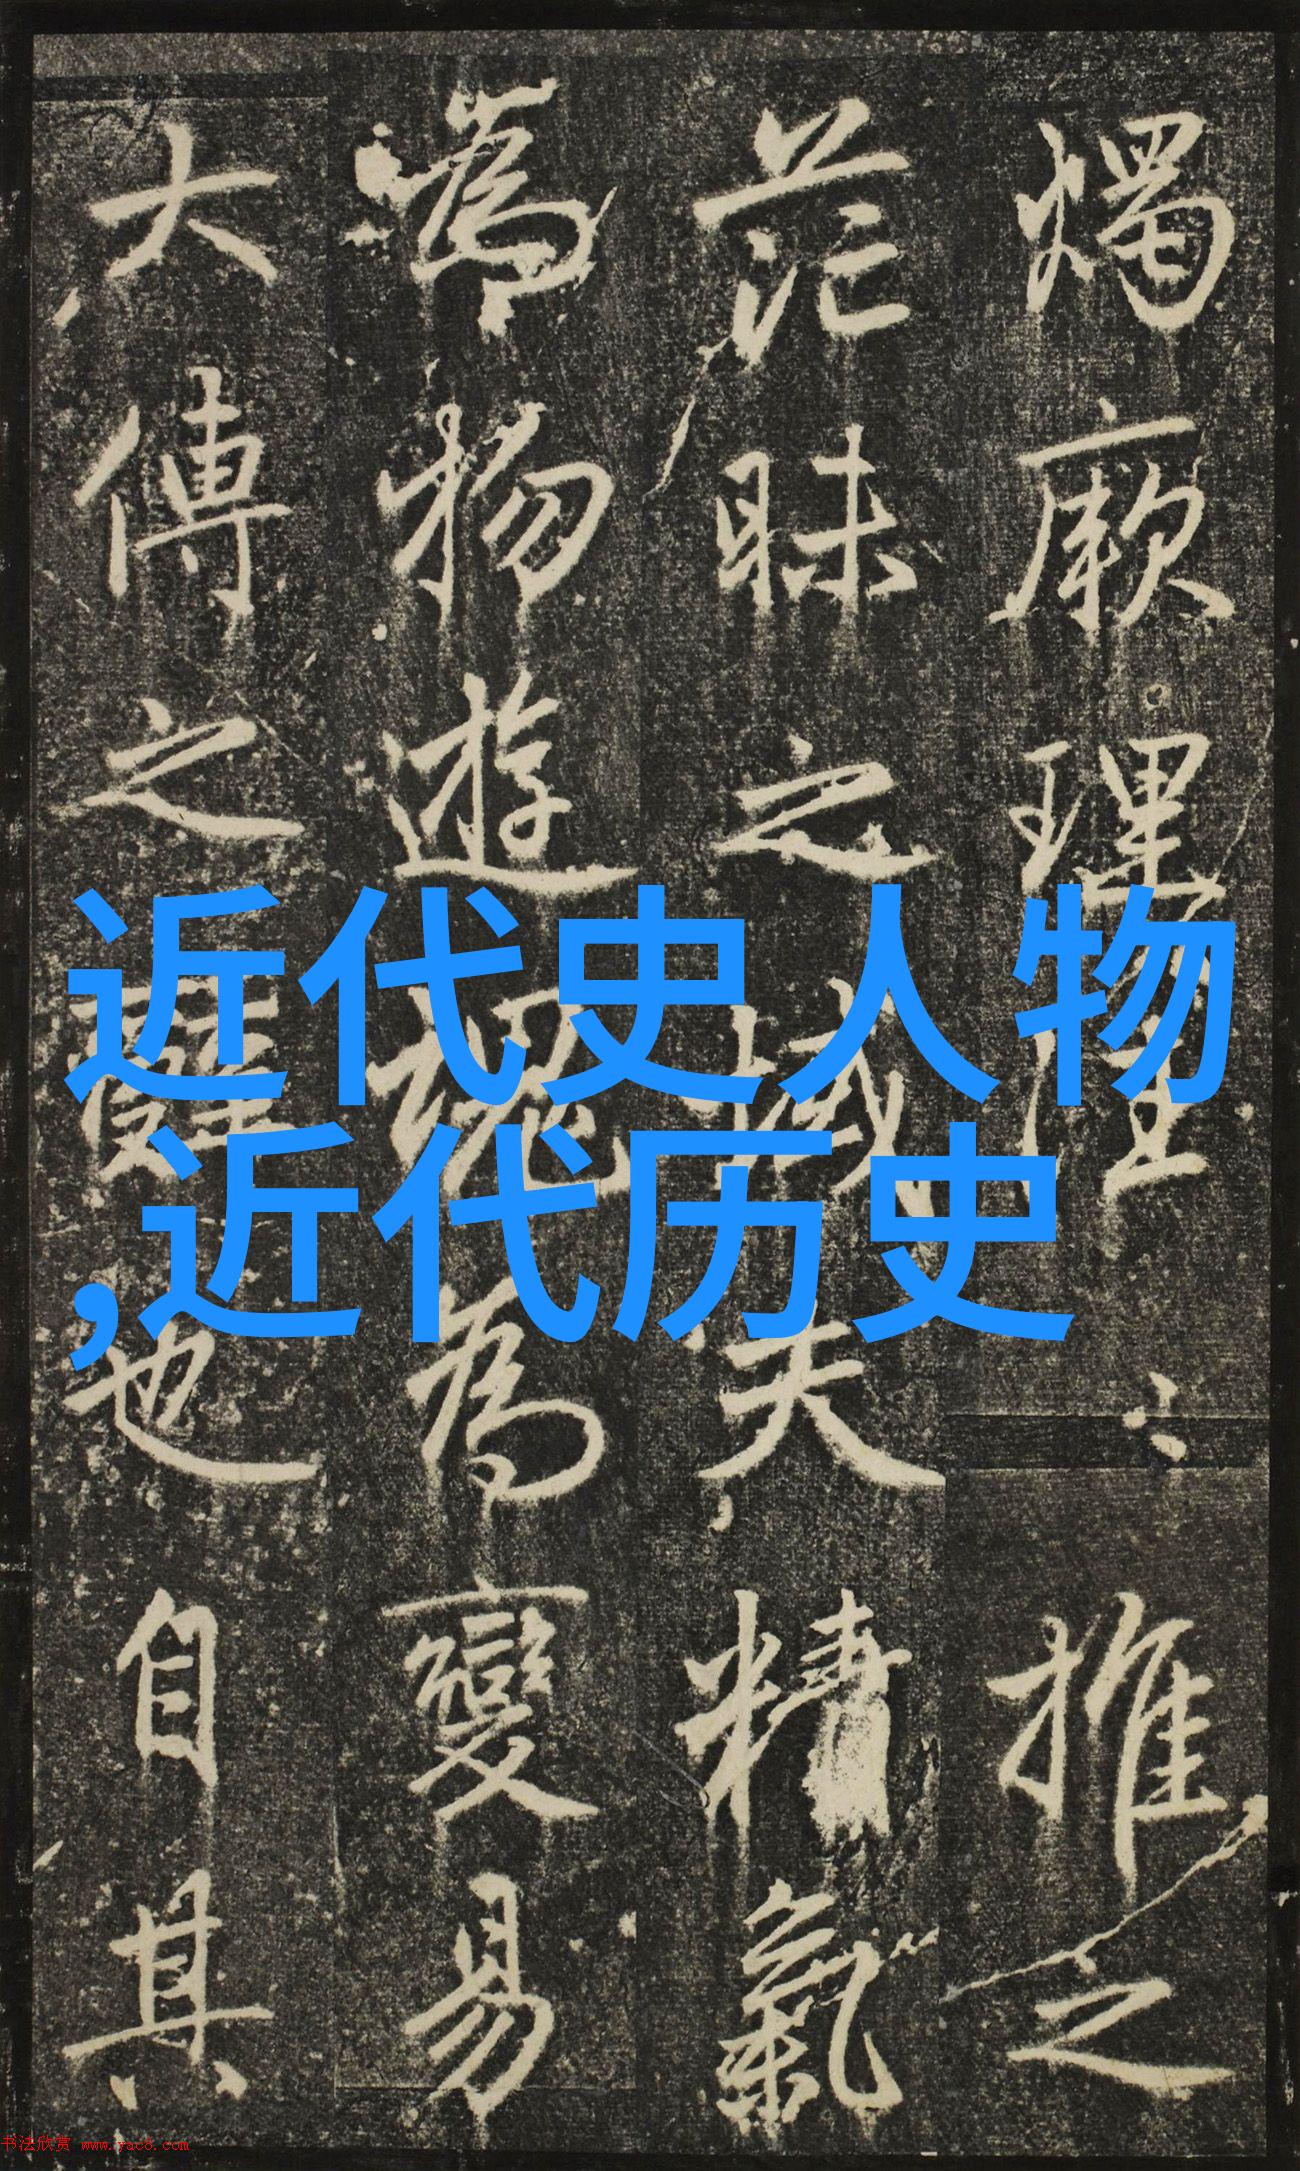 燭厥理㦬推之
茫昧之域夫精氣
為物遊魂為變易
大傳之辭也自其
近代史人物
,近代历史
书法欣赏 www.yac8.com